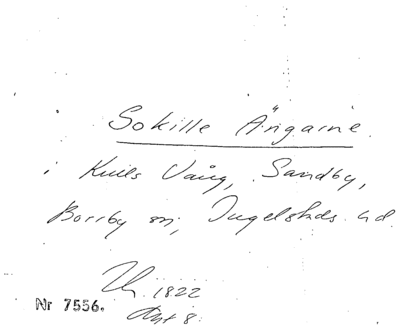 Sokille Ängarne.
i Knills Vång, Sandby,
Borrby sn, Ingelstads hd.
1822
Akt 8.
Nr 7556.